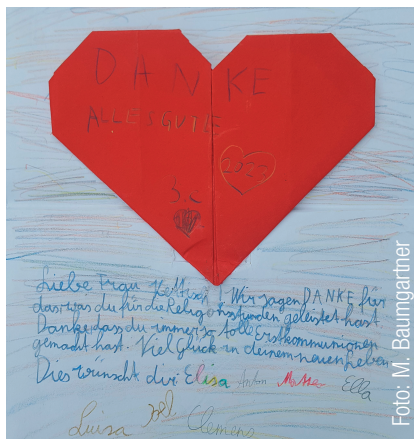 DANKE
ALLES GUTE
2022
J.C
Liebe Frau Wir sagen DANKE für
das was du für die Religionsstunden geleistet hast.
Danke dass du immer so tolle Erstkommunionen
gemacht hast. Viel Glück in deinem neuen Leben
Dies wünscht dir Elisa Anton Matteo Ella
Luisa Joel Clemens
Foto: M. Baumgartner